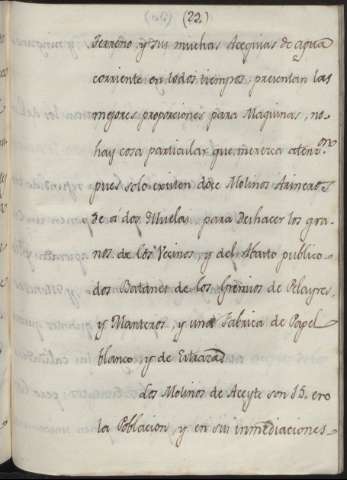 (22)
Terreno, y sus muchas Azequias de agua
corriente en todos tiempos, presentan las
mejores proporciones para Maquinas, no
hay cosa particular que merezca atenc.on
pues solo existen doze Molinos Arineros
de á dos Muelas, para deshacer los gra-
nos de los Vecinos, y del Abasto publico
dos Batanes de los Gremios de Pelayres
y Manteros, y una Fabrica de Papel
blanco, y de Estraza
Los Molinos de Aceyte son
la Poblacion, y en sus inmediaciones